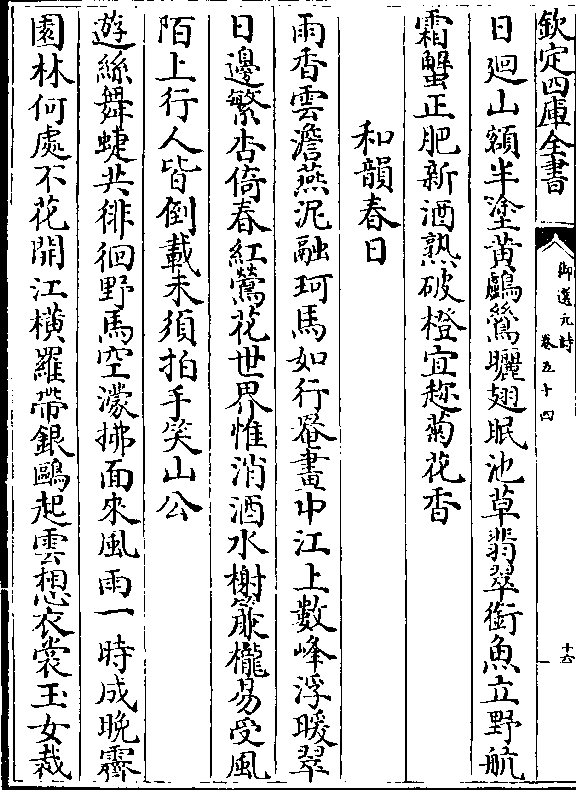 欽定四庫全書
御選元詩
卷五十四
十六
日廻山額半塗黄鸕鷀曬翅眠池草翡翠銜魚立野航
霜蟹正肥新酒熟破橙宜趂菊花香
和韻春日
雨香雲澹燕泥融珂馬如行罨畫中江上數峰浮暖翠
日邊繁杏倚春紅鶯花世界惟消酒水榭簾櫳易受風
陌上行人皆倒載未須拍手笑山公
遊絲舞蜨共徘徊野馬空濛拂面來風雨一時成晚霽
園林何處不花開江橫羅帶銀鷗起雲想衣裳玉女裁